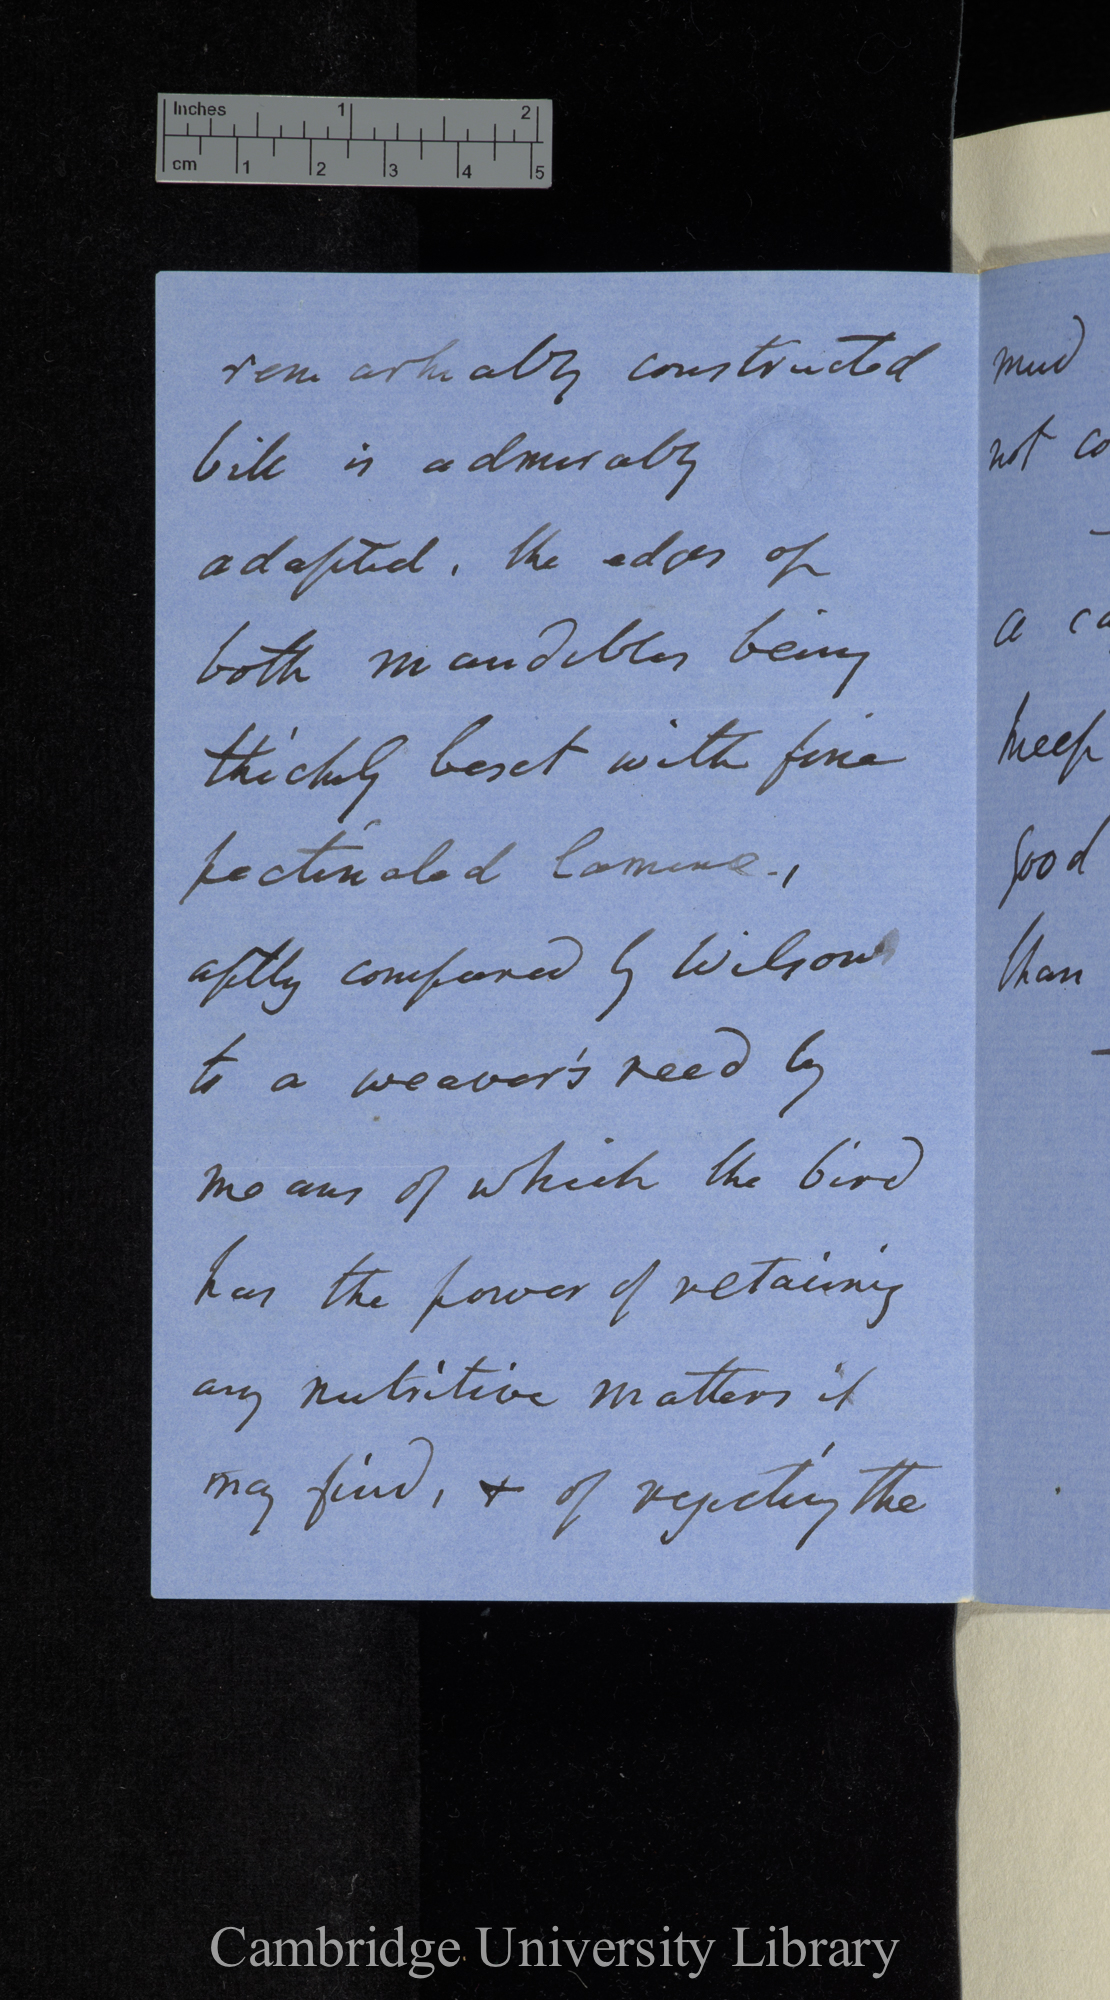 Inches 1 2
cm 1 2 3 4 5
remarkably constructed
bill is admirably
adapted, the edges of
both mandibles being
thickly beset with fine
pectinated laminæ,
aptly compared by Wilson
to a weaver's reed by
means of which the bird
has the power of retaining
any nutritive matters it
may find, & of rejecting the
mud
not co
a ca
keep
good
than
Cambridge University Library